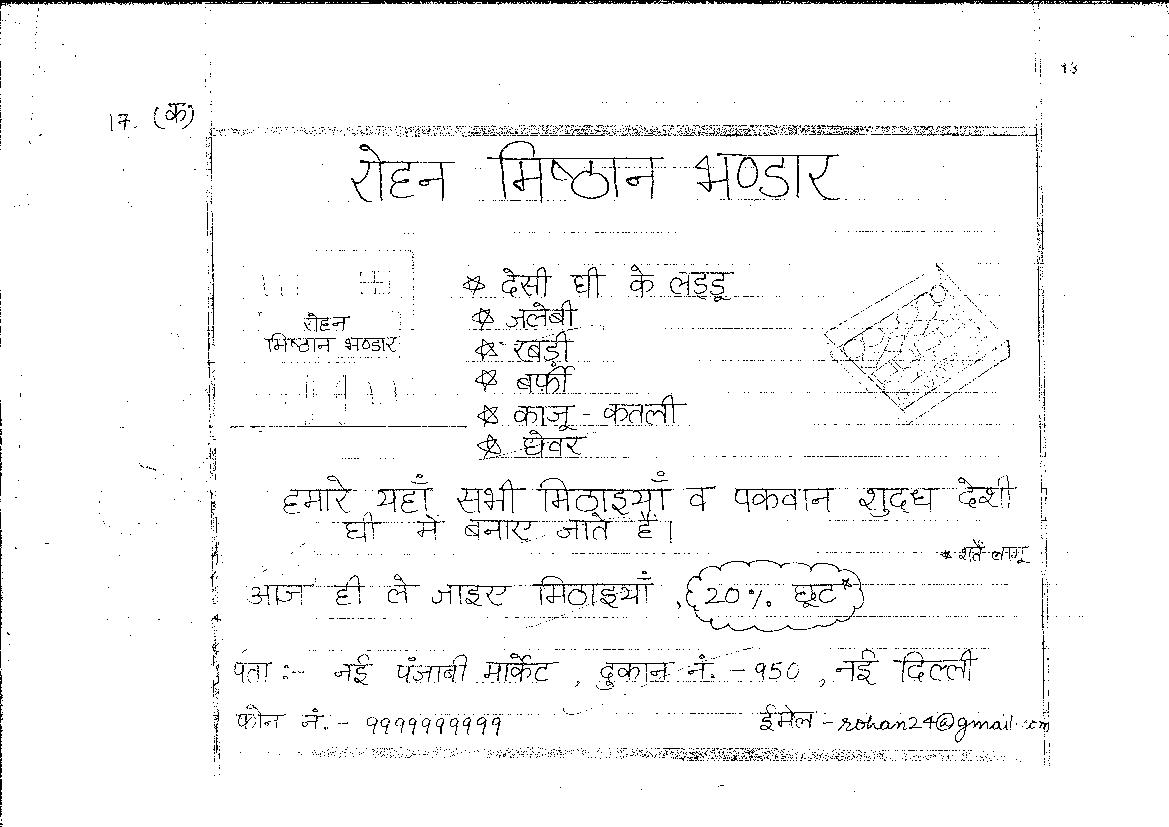 13
17. (क)
रोहन मिष्ठान भण्डार
रोहन
मिष्ठान भण्डार
☆ देसी घी के लड्डू
☆ जलेबी
☆ रबड़ी
☆ बर्फी
☆ काजू - कतली
☆ घेवर
हमारे यहाँ सभी मिठाइयाँ व पकवान शुद्ध देशी
घी में बनाए जाते हैं।
* शर्तें लागू
आज ही ले जाइए मिठाइयाँ, 20% छूट*
पता :- नई पंजाबी मार्केट, दुकान नं. - 950, नई दिल्ली
फोन नं. - 9999999999 ईमेल - rohan24@gmail.com